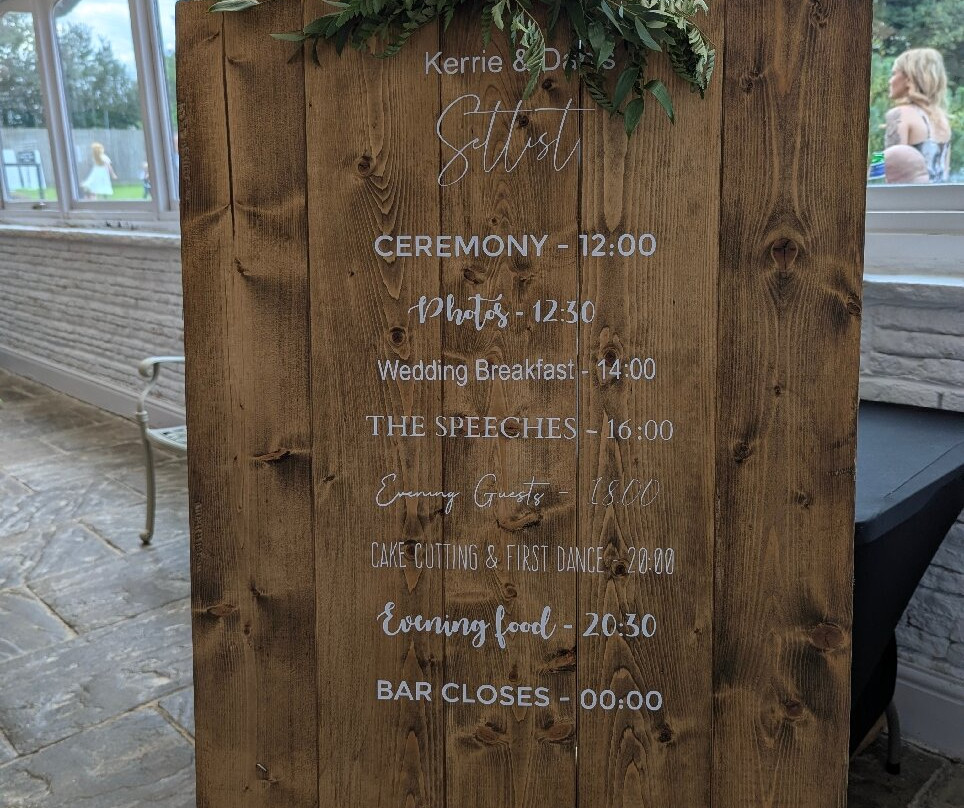 Kerrie &
Setlist
CEREMONY - 12:00
Photos - 12:30
Wedding Breakfast - 14:00
THE SPEECHES - 16:00
Evening Guests - 18:00
CAKE CUTTING & FIRST DANCE - 20:00
Evening food - 20:30
BAR CLOSES - 00:00